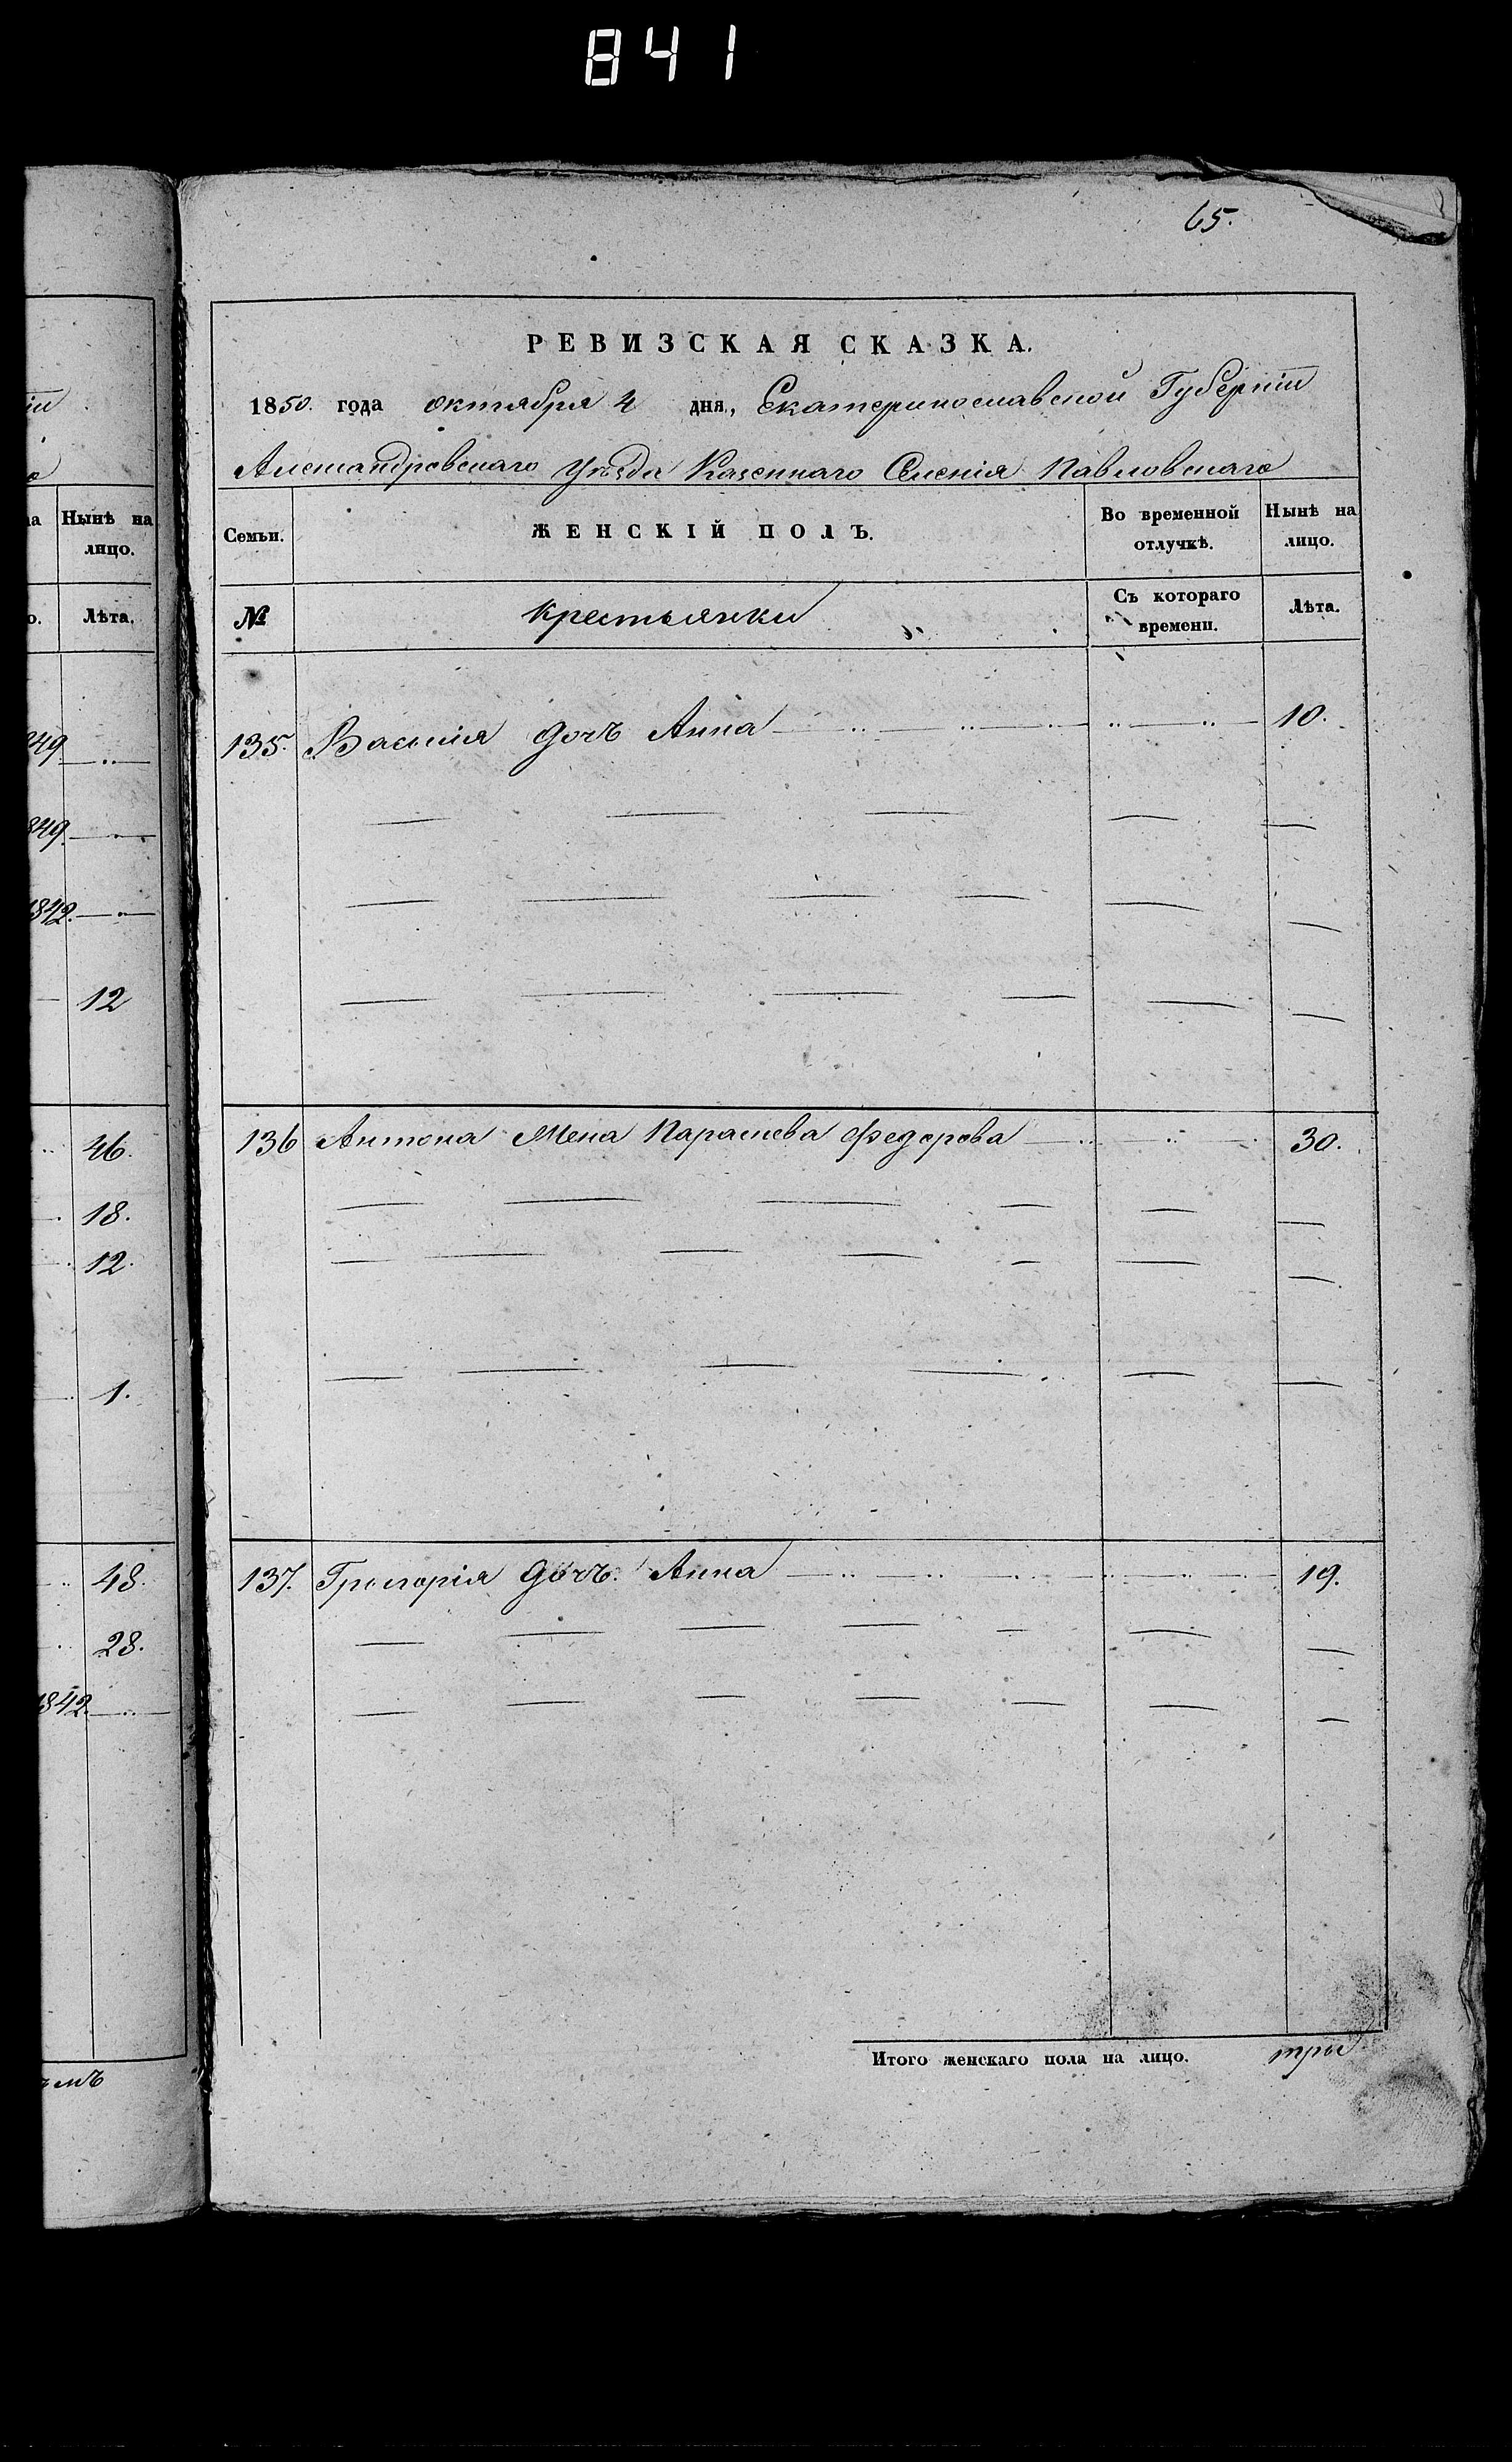 841
65.
РЕВИЗСКАЯ СКАЗКА.
1850. года октября 4 дня, Екатеринославской Губерніи
Александровскаго Уѣзда Казеннаго Селенія Павловскаго
Семьи.
ЖЕНСКІЙ ПОЛЪ.
Во временной
отлучкѣ.
Нынѣ на
лицо.
№
крестьянки
Съ котораго
времени.
Лѣта.
135. Василія дочь Анна 10.
136 Антона Жена Параскева Федорова 30.
137. Григорія дочь Анна 19.
Итого женскаго пола на лицо. три
Нынѣ на
лицо.
Лѣта.
849
849.
1842.
12
46.
18.
12.
1.
48.
28.
1842.